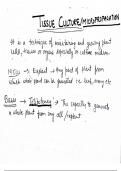 TISSUE CULTURE/MICROPROPAGATION
It is a technique of maintaining and growing plant
cells, tissues or organs especially on culture medium.
→ Explant → Any part of plant from
which whole plant can be generated i.e leaf, any etc
Basis → Totipotency → The capacity to generate
a whole plant from any cell / explant.